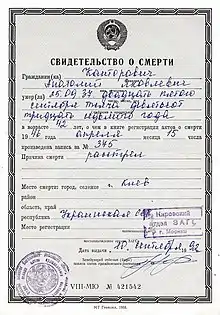 СВИДЕТЕЛЬСТВО О СМЕРТИ
Гражданин(ка) Канторович
Анатолий Яковлевич
умер(ла) 25.09.37 двадцать пятого
сентября тысяча девятьсот
тридцать седьмого года
в возрасте 42 лет, о чем в книге регистрации актов о смерти
апреля месяца 15
произведена запись за № 345
Причина смерти расстрел
Место смерти: город, селение г. Киев
район
область, край
республика Украинская ССР
Место регистрации Кировский
отдел ЗАГС
Дата выдачи
VIII-МЮ № 421542